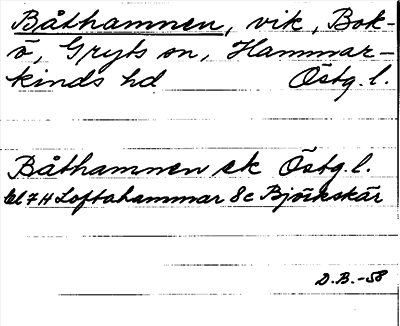 Båthamnen, vik, Bok-
ö, Gryts sn, Hammar-
kinds hd Östg. l.
Båthamnen ek Östg. l.
bl 7H Loftahammar 8c Björkskär
D.B.-58